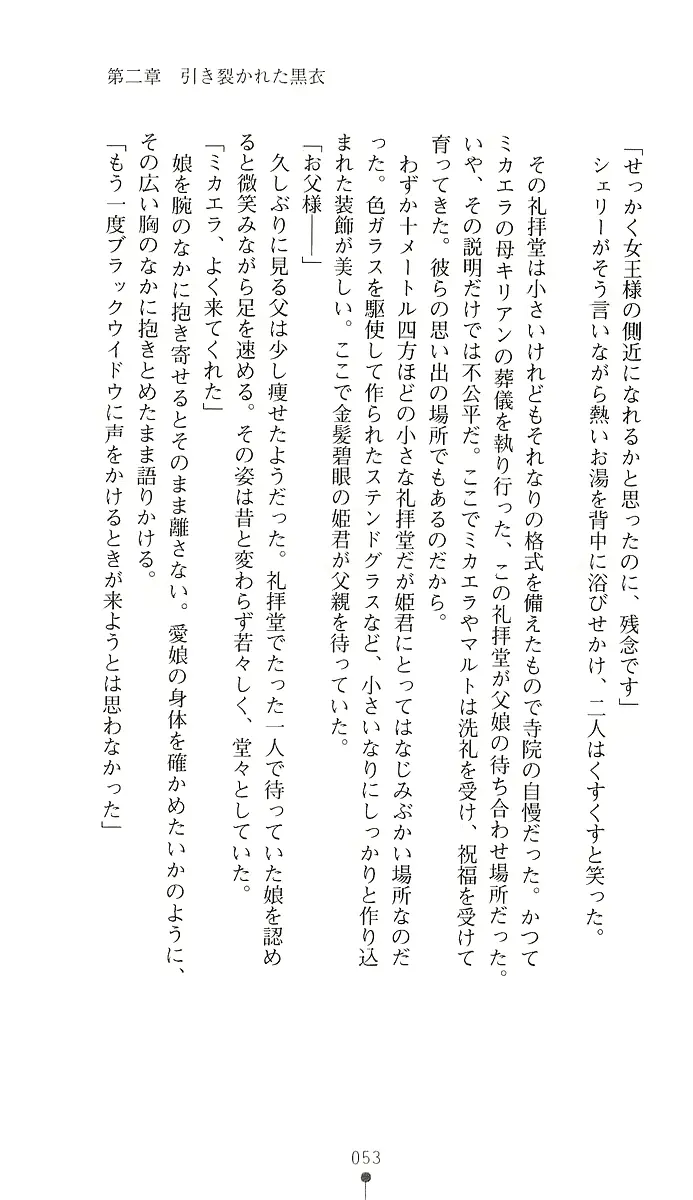 第二章　引き裂かれた黒衣
「せっかく女王様の側近になれるかと思ったのに、残念です」
　シェリーがそう言いながら熱いお湯を背中に浴びせかけ、二人はくすくすと笑った。
　その礼拝堂は小さいけれどもそれなりの格式を備えたもので寺院の自慢だった。かつて
ミカエラの母キリアンの葬儀を執り行った、この礼拝堂が父娘の待ち合わせ場所だった。
いや、その説明だけでは不公平だ。ここでミカエラやマルトは洗礼を受け、祝福を受けて
育ってきた。彼らの思い出の場所でもあるのだから。
　わずか十メートル四方ほどの小さな礼拝堂だが姫君にとってはなじみぶかい場所なのだ
った。色ガラスを駆使して作られたステンドグラスなど、小さいなりにしっかりと作り込
まれた装飾が美しい。ここで金髪碧眼の姫君が父親を待っていた。
「お父様――」
　久しぶりに見る父は少し痩せたようだった。礼拝堂でたった一人で待っていた娘を認め
ると微笑みながら足を速める。その姿は昔と変わらず若々しく、堂々としていた。
「ミカエラ、よく来てくれた」
　娘を腕のなかに抱き寄せるとそのまま離さない。愛娘の身体を確かめたいかのように、
その広い胸のなかに抱きとめたまま語りかける。
「もう一度ブラックウイドウに声をかけるときが来ようとは思わなかった」
053